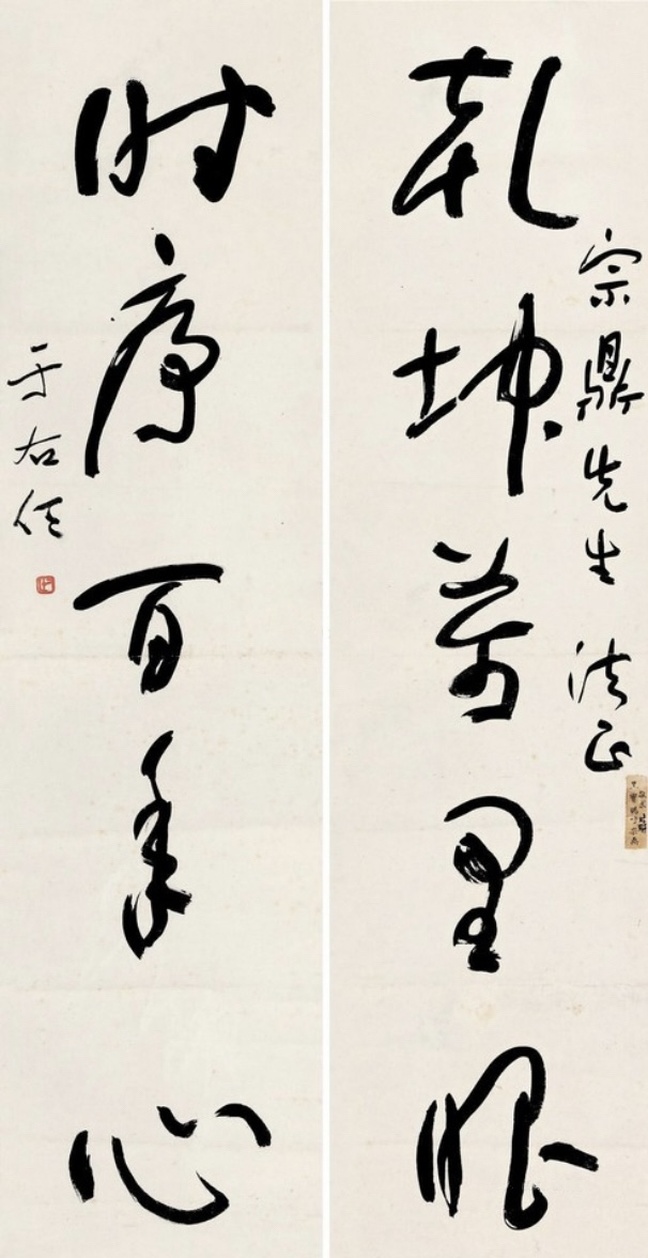 宗鼎先生 法正
乾坤萬里眼
時序百年心
于右任